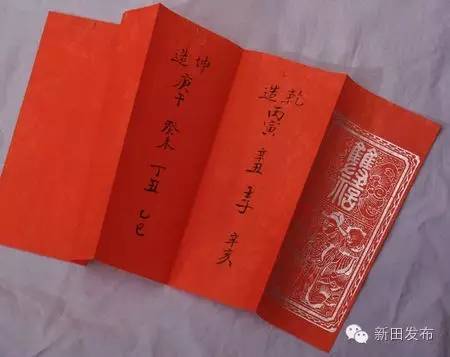 乾造 丙寅 辛丑 壬子 辛亥
坤造 庚午 癸未 丁丑 乙巳
新田发布